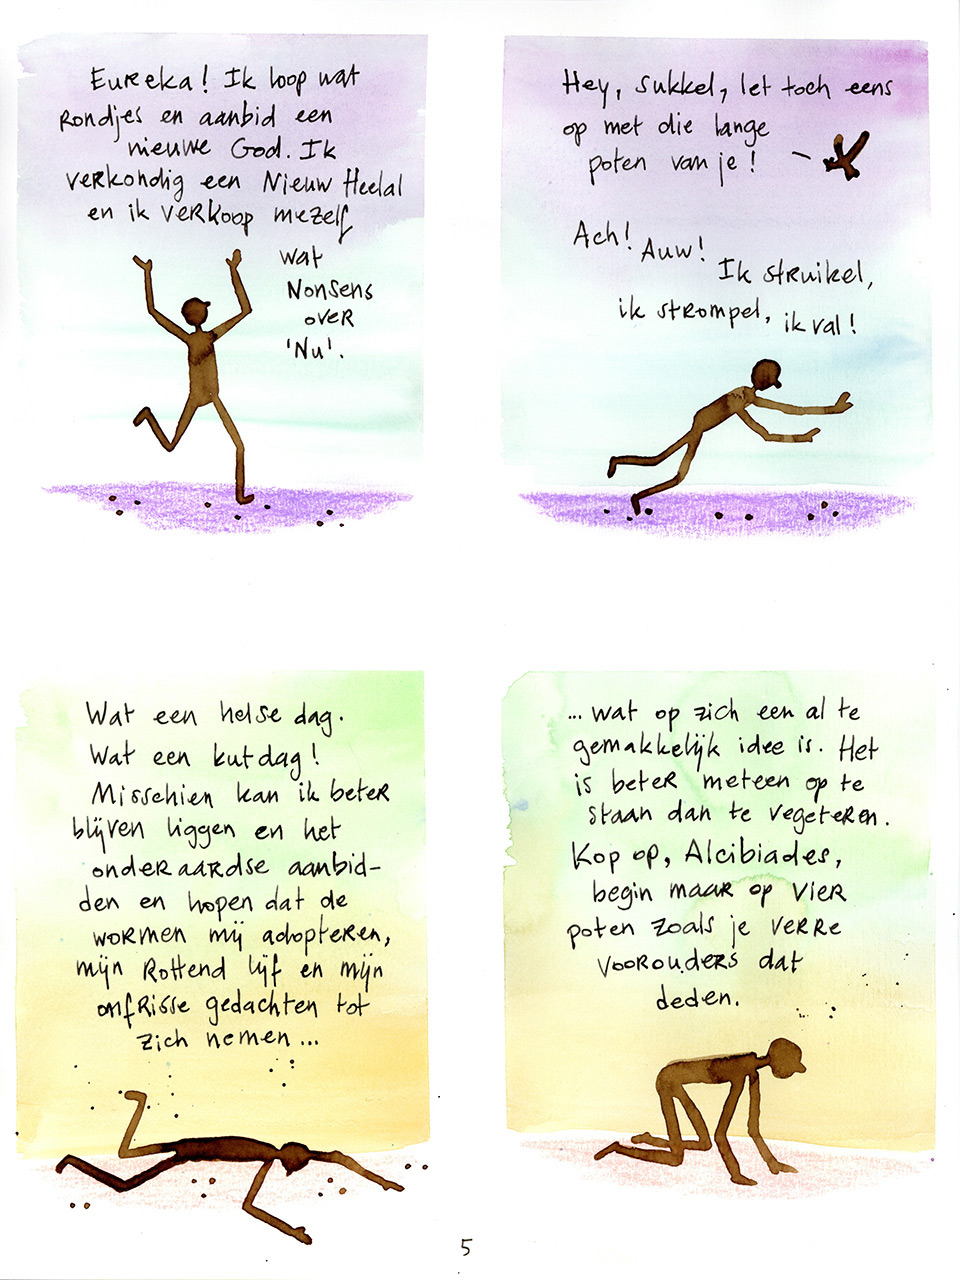 Eureka! Ik loop wat
rondjes en aanbid een
nieuwe God. Ik
verkondig een Nieuw Heelal
en ik verkoop mezelf
wat
nonsens
over
'Nu'.
Hey, sukkel, let toch eens
op met die lange
poten van je!
Ach! Auw!
Ik struikel,
ik strompel, ik val!
Wat een helse dag.
Wat een kutdag!
Misschien kan ik beter
blijven liggen en het
onderaardse aanbid-
den en hopen dat de
wormen mij adopteren,
mijn rottend lijf en mijn
onfrisse gedachten tot
zich nemen...
... wat op zich een al te
gemakkelijk idee is. Het
is beter meteen op te
staan dan te vegeteren.
Kop op, Alcibiades,
begin maar op vier
poten zoals je verre
voorouders dat
deden.
5